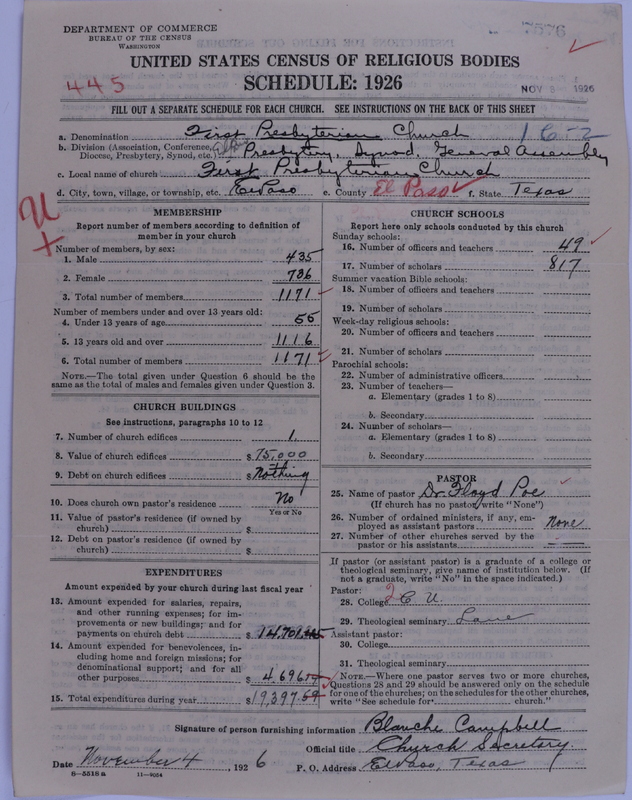 DEPARTMENT OF COMMERCE
BUREAU OF THE CENSUS
WASHINGTON
7576
UNITED STATES CENSUS OF RELIGIOUS BODIES
SCHEDULE: 1926
445
NOV 8 1926
FILL OUT A SEPARATE SCHEDULE FOR EACH CHURCH. SEE INSTRUCTIONS ON THE BACK OF THIS SHEET
a. Denomination First Presbyterian Church 16-2
b. Division (Association, Conference, Diocese, Presbytery, Synod, etc.) Presbytery, Synod, General Assembly
c. Local name of church First Presbyterian Church
d. City, town, village, or township, etc. El Paso e. County El Paso f. State Texas
MEMBERSHIP
Report number of members according to definition of
member in your church
Number of members, by sex:
1. Male 435
2. Female 736
3. Total number of members 1171
Number of members under and over 13 years old:
4. Under 13 years of age 55
5. 13 years old and over 1116
6. Total number of members 1171
NOTE.—The total given under Question 6 should be
same as the total of males and females given under Question 3.
CHURCH BUILDINGS
See instructions, paragraphs 10 to 12
7. Number of church edifices 1
8. Value of church edifices $75,000
9. Debt on church edifices $Nothing
10. Does church own pastor's residence No
Yes or No
11. Value of pastor's residence (if owned by
church) $
12. Debt on pastor's residence (if owned by
church) $
EXPENDITURES
Amount expended by your church during last fiscal year
13. Amount expended for salaries, repairs,
and other running expenses; for im-
provements or new buildings; and for
payments on church debt $14,701
14. Amount expended for benevolences, in-
cluding home and foreign missions; for
denominational support; and for all
other purposes $4,696
15. Total expenditures during year $19,397.59
CHURCH SCHOOLS
Report here only schools conducted by this church
Sunday schools:
16. Number of officers and teachers 49
17. Number of scholars 817
Summer vacation Bible schools:
18. Number of officers and teachers
19. Number of scholars
Week-day religious schools:
20. Number of officers and teachers
21. Number of scholars
Parochial schools:
22. Number of administrative officers
23. Number of teachers—
a. Elementary (grades 1 to 8)
b. Secondary
24. Number of scholars—
a. Elementary (grades 1 to 8)
b. Secondary
PASTOR
25. Name of pastor Dr. Floyd Poe
(If church has no pastor, write "None")
26. Number of ordained ministers, if any, em-
ployed as assistant pastors None
27. Number of other churches served by the
pastor or his assistants
If pastor (or assistant pastor) is a graduate of a college or
theological seminary, give name of institution below. (If
not a graduate, write "No" in the space indicated.)
Pastor:
28. College C U.
29. Theological seminary Lane
Assistant pastor:
30. College
31. Theological seminary
NOTE.—Where one pastor serves two or more churches,
Questions 28 and 29 should be answered only on the schedule
for one of the churches; on the schedules for the other churches,
write "See schedule for church."
Signature of person furnishing information Blanche Campbell
Official title Church Secretary
Date November 4, 1926 P. O. Address El Paso, Texas
8—5518 a 11—9054